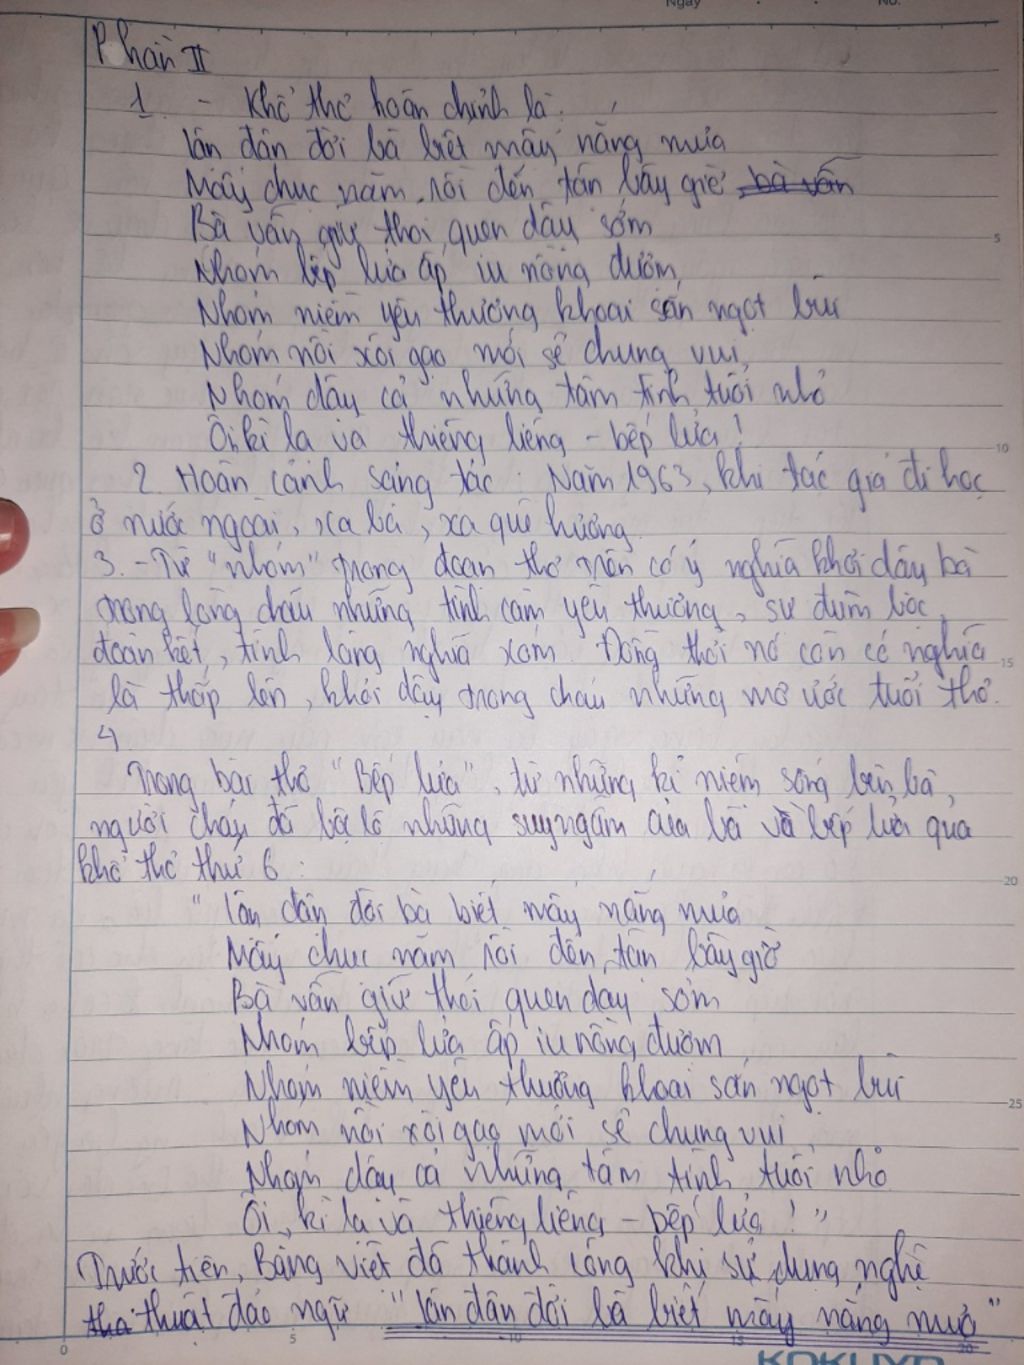 Ngày No.
Phần II
1. - Khổ thơ hoàn chỉnh là:
Lận đận đời bà biết mấy nắng mưa
Mấy chục năm rồi đến tận bây giờ bà vẫn
Bà vẫn giữ thói quen dậy sớm
Nhóm bếp lửa ấp iu nồng đượm
Nhóm niềm yêu thương khoai sắn ngọt bùi
Nhóm nồi xôi gạo mới sẻ chung vui
Nhóm dậy cả những tâm tình tuổi nhỏ
Ôi kì lạ và thiêng liêng - bếp lửa!
2. Hoàn cảnh sáng tác: Năm 1963, khi tác giả đi học
ở nước ngoài, xa bà, xa quê hương.
3. - Từ "nhóm" trong đoạn thơ trên có ý nghĩa khơi dậy bà
trong lòng cháu những tình cảm yêu thương, sự đùm bọc,
đoàn kết, tình làng nghĩa xóm. Đồng thời nó còn có nghĩa
là thắp lên, khơi dậy trong cháu những mơ ước tuổi thơ.
4
Trong bài thơ "Bếp lửa", từ những kỉ niệm sống bên bà,
người cháu đã bộc lộ những suy ngẫm của bà và bếp lửa qua
khổ thơ thứ 6:
"Lận đận đời bà biết mấy nắng mưa
Mấy chục năm rồi đến tận bây giờ
Bà vẫn giữ thói quen dạy sớm
Nhóm bếp lửa ấp iu nồng đượm
Nhóm niềm yêu thương khoai sắn ngọt bùi
Nhóm nồi xôi gạo mới sẻ chung vui
Nhóm dậy cả những tâm tình tuổi nhỏ
Ôi, kì lạ và thiêng liêng - bếp lửa!"
Trước tiên, Bằng Việt đã thành công khi sử dụng nghệ
tha thuật đảo ngữ "lận đận đời bà biết mấy nắng mưa"
KOKUYO